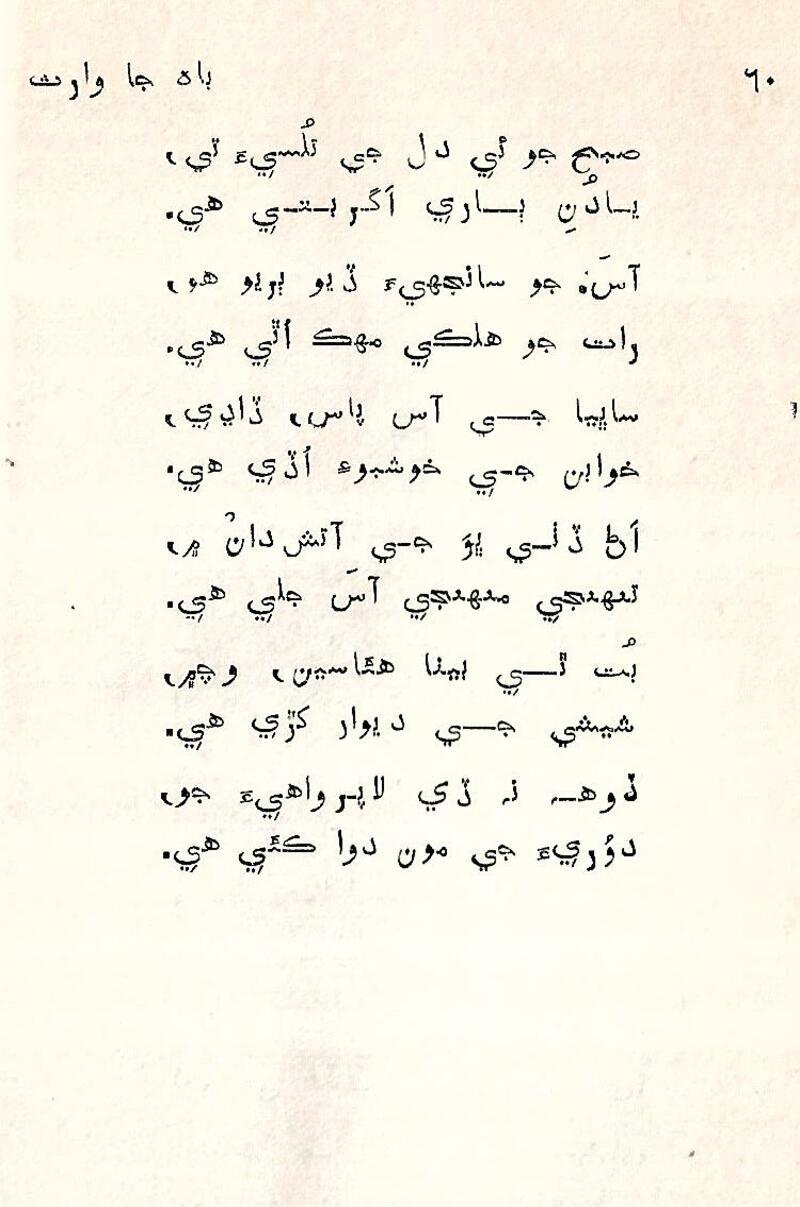 ٦٠ باه جا وارث
صبح جو ئي دل جي تُلسيءَ تي،
يادُنِ ٻاري اَگربتي هي.
آسَ: جو سانجهيءَ ڏيو ٻريو هو،
رات جو هلڪي مهڪ اُٿي هي.
ساڀيا جي آس پاس، ڏاڍي،
خوابن جي خوشبوءِ اُڏي هي.
اَڻ ڏٺي ڀوَ جي آتش دان ۾،
تنهنجي منهنجي آسَ جلي هي.
بُت ٿي بيٺا هئاسين، وچ۾،
شيشي جي ديوار کڙي هي.
ڏوهه نه ڏي لاپرواهيءَ جو،
دوُريءَ جي مون دوا ڪئي هي.